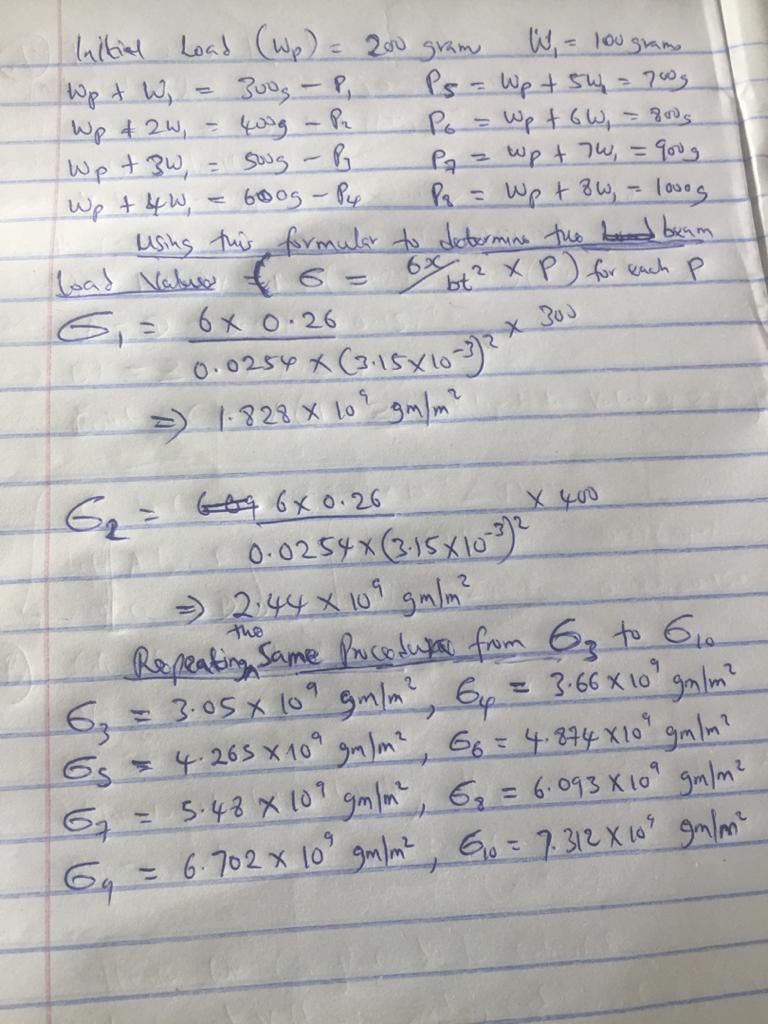 Initial Load (Wp) = 200 gram W₁ = 100 grams
Wp + W₁ = 300g - P₁ P5 = Wp + 5W₁ = 700g
Wp + 2W₁ = 400g - P₂ P6 = Wp + 6W₁ = 800g
Wp + 3W₁ = 500g - P3 P7 = Wp + 7W₁ = 900g
Wp + 4W₁ = 600g - P4 P8 = Wp + 8W₁ = 1000g
Using this formular to determine the beam
Load Values (б = 6x/bt² × P) for each P
б₁ = 6 × 0.26 / 0.0254 × (3.15×10⁻³)² × 300
⇒ 1.828 × 10⁹ gm/m²
б₂ = 6 × 0.26 / 0.0254 × (3.15×10⁻³)² × 400
⇒ 2.44 × 10⁹ gm/m²
Repeating the Same Procedure from б3 to б10
б3 = 3.05 × 10⁹ gm/m², б4 = 3.66 × 10⁹ gm/m²
б5 = 4.265 × 10⁹ gm/m², б6 = 4.874 × 10⁹ gm/m²
б7 = 5.48 × 10⁹ gm/m², б8 = 6.093 × 10⁹ gm/m²
б9 = 6.702 × 10⁹ gm/m², б10 = 7.312 × 10⁹ gm/m²